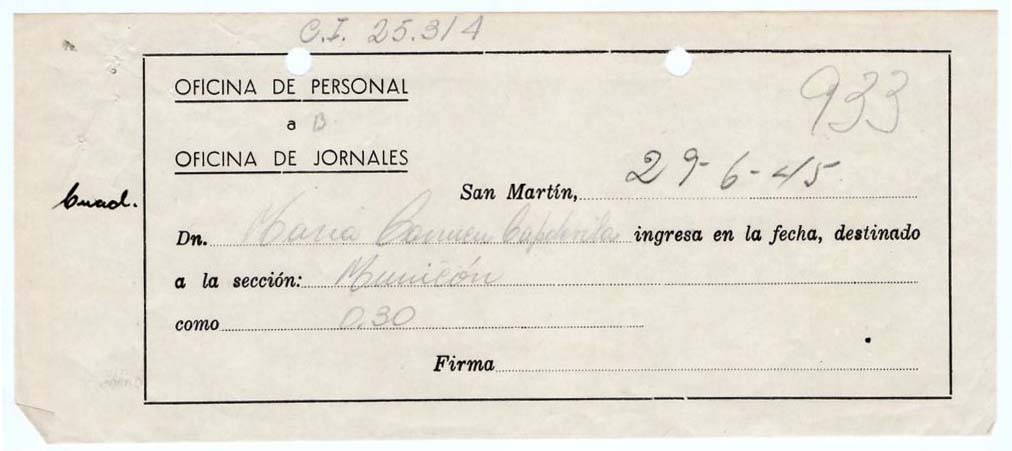 C.I. 25.314
OFICINA DE PERSONAL
933
a B.
OFICINA DE JORNALES
San Martín, 29-6-45
Cuad.
Dn. María Carmen Capdevila ingresa en la fecha, destinado
a la sección: Munición
como 0.30
Firma